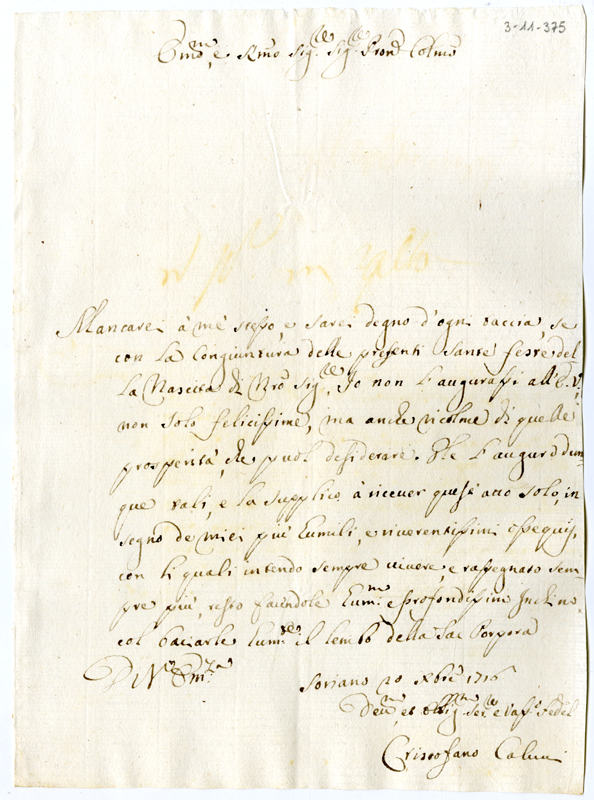 3-11-375
Em̃o, e Rm̃o Sig.re Sig.re Pron̄e Colm̃o
Mancarei à me stesso, e sarei degno d'ogni taccia, se
con la congiuntura delle presenti Sante feste del
la Nascita di Nrõ Sig.re, Io non l'augurassi all'E.V.,
non solo felicissime, ma anche ricolme di quelle
prosperità, che puol desiderare. Gle l'auguro dun-
que tali, e la supplico à ricever quest'atto solo, in
segno de miei più humili, e riverentissimi ossequij,
con li quali intendo sempre vivere, e rassegnato sem-
pre più, resto facendole hum.ma e profondissim Inchino
col baciarle hum.te il lembo della Sac Porpora
Di V.ra Em.za
Soriano 20 Xbre 1716
Dev.mo et Obblig.mo Ser.e e Vass.o Fedel
Cristofano